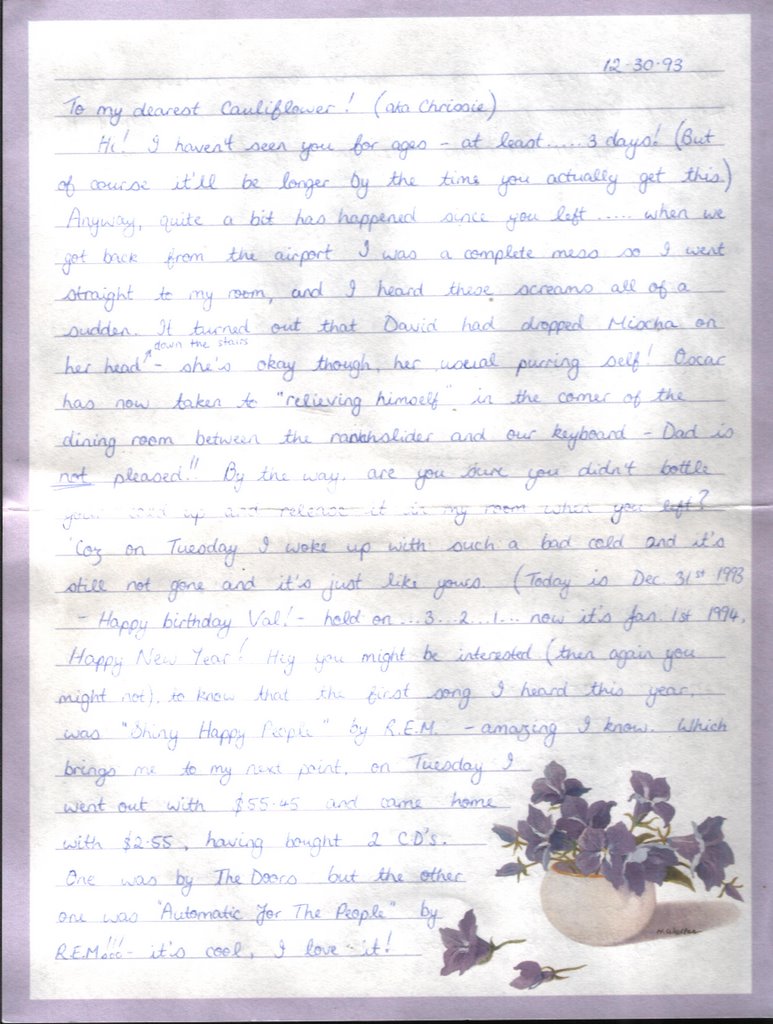 12-30-93
To my dearest Cauliflower! (aka Chrissie)
Hi! I haven't seen you for ages - at least.....3 days! (But
of course it'll be longer by the time you actually get this.)
Anyway, quite a bit has happened since you left ..... when we
got back from the airport I was a complete mess so I went
straight to my room, and I heard these screams all of a
sudden. It turned out that David had dropped Mischa on
down the stairs
her head - she's okay though, her usual purring self! Oscar
has now taken to "relieving himself" in the corner of the
dining room between the and our keyboard - Dad is
not pleased!! By the way, are you sure you didn't bottle
your cold up and release it in my room when you left?
'Coz on Tuesday I woke up with such a bad cold and it's
still not gone and it's just like yours. (Today is Dec. 31st 1993
- Happy birthday Val! - hold on ...3...2...1... now it's Jan. 1st 1994,
Happy New Year! Hey you might be interested (then again you
might not), to know that the first song I heard this year,
was "Shiny Happy People" by R.E.M. - amazing I know. Which
brings me to my next point, on Tuesday I
went out with $55.45 and came home
with $2.55, having bought 2 CD's.
One was by The Doors but the other
one was "Automatic For The People" by
R.E.M!!! - it's cool, I love it!